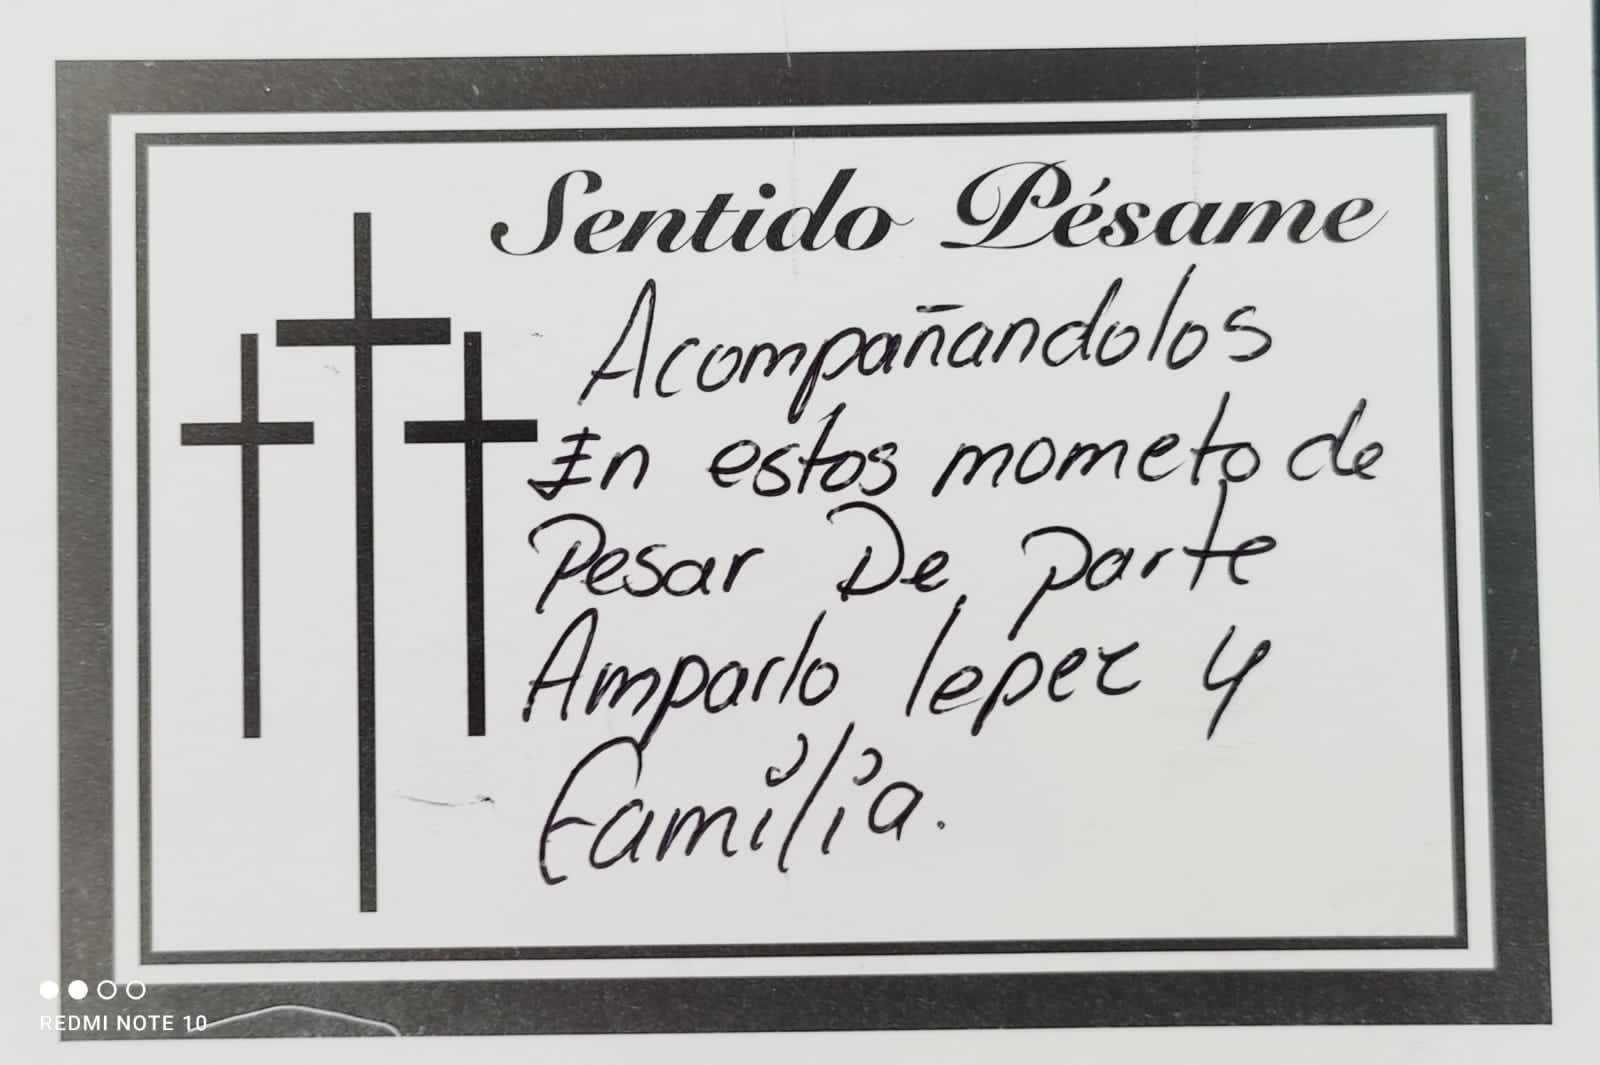 Sentido Pésame
Acompañandolos
En estos mometo de
Pesar De parte
Amparlo lepez y
Familia.
REDMI NOTE 10